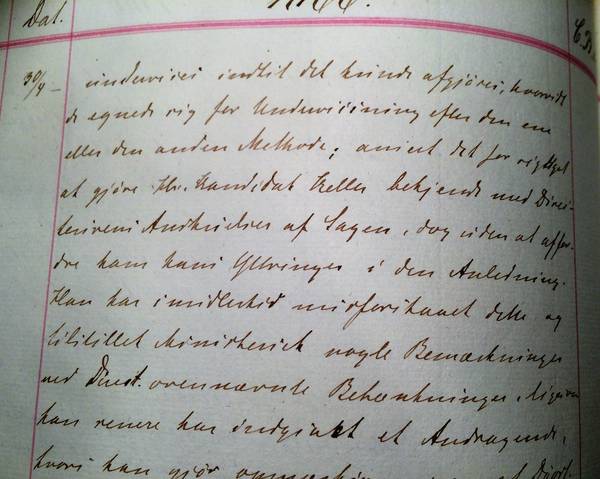 Dat.
30/4 – undervises indtil det kunde afgjøres, hvorvidt
de egnede sig for Undervisning efter den ene
eller den anden Methode; ansees det for rigtigst
at gjøre Hr. Kandidat Keller bekjendt med Direc-
teurens Anskuelser af Sagen, dog uden at affor-
dre ham hans Yttringer i den Anledning.
Han har imidlertid misforstaaet dette og
tilstillet Ministeriet nogle Bemærkninger
ved Direct. ovennævnte Betænkninger, ligesom
han senere har indgivet et Andragende,
hvori han gjør